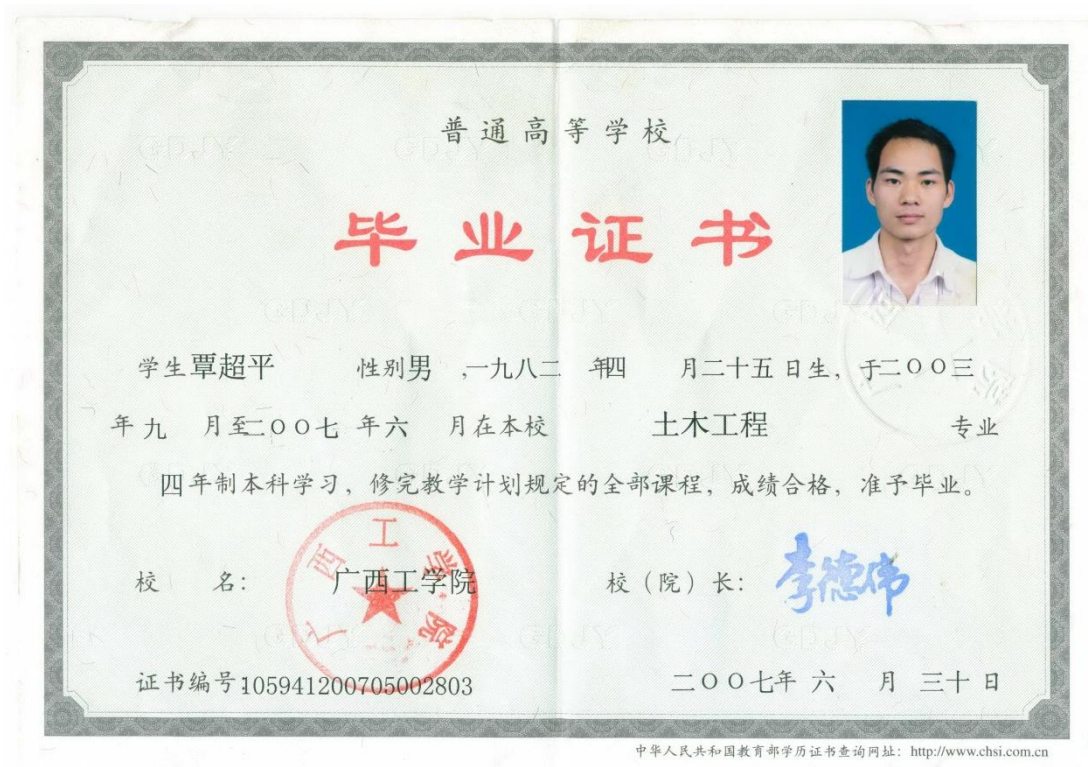 普通高等学校
毕业证书
学生覃超平 性别男,一九八二年四月二十五日生，于二００三
年九月至二００七年六月在本校 土木工程 专业
四年制本科学习，修完教学计划规定的全部课程，成绩合格，准予毕业。
校 名：广西工学院 校（院）长：李德伟
广西工学院
证书编号:105941200705002803 二００七年六月三十日
中华人民共和国教育部学历证书查询网址：http://www.chsi.com.cn